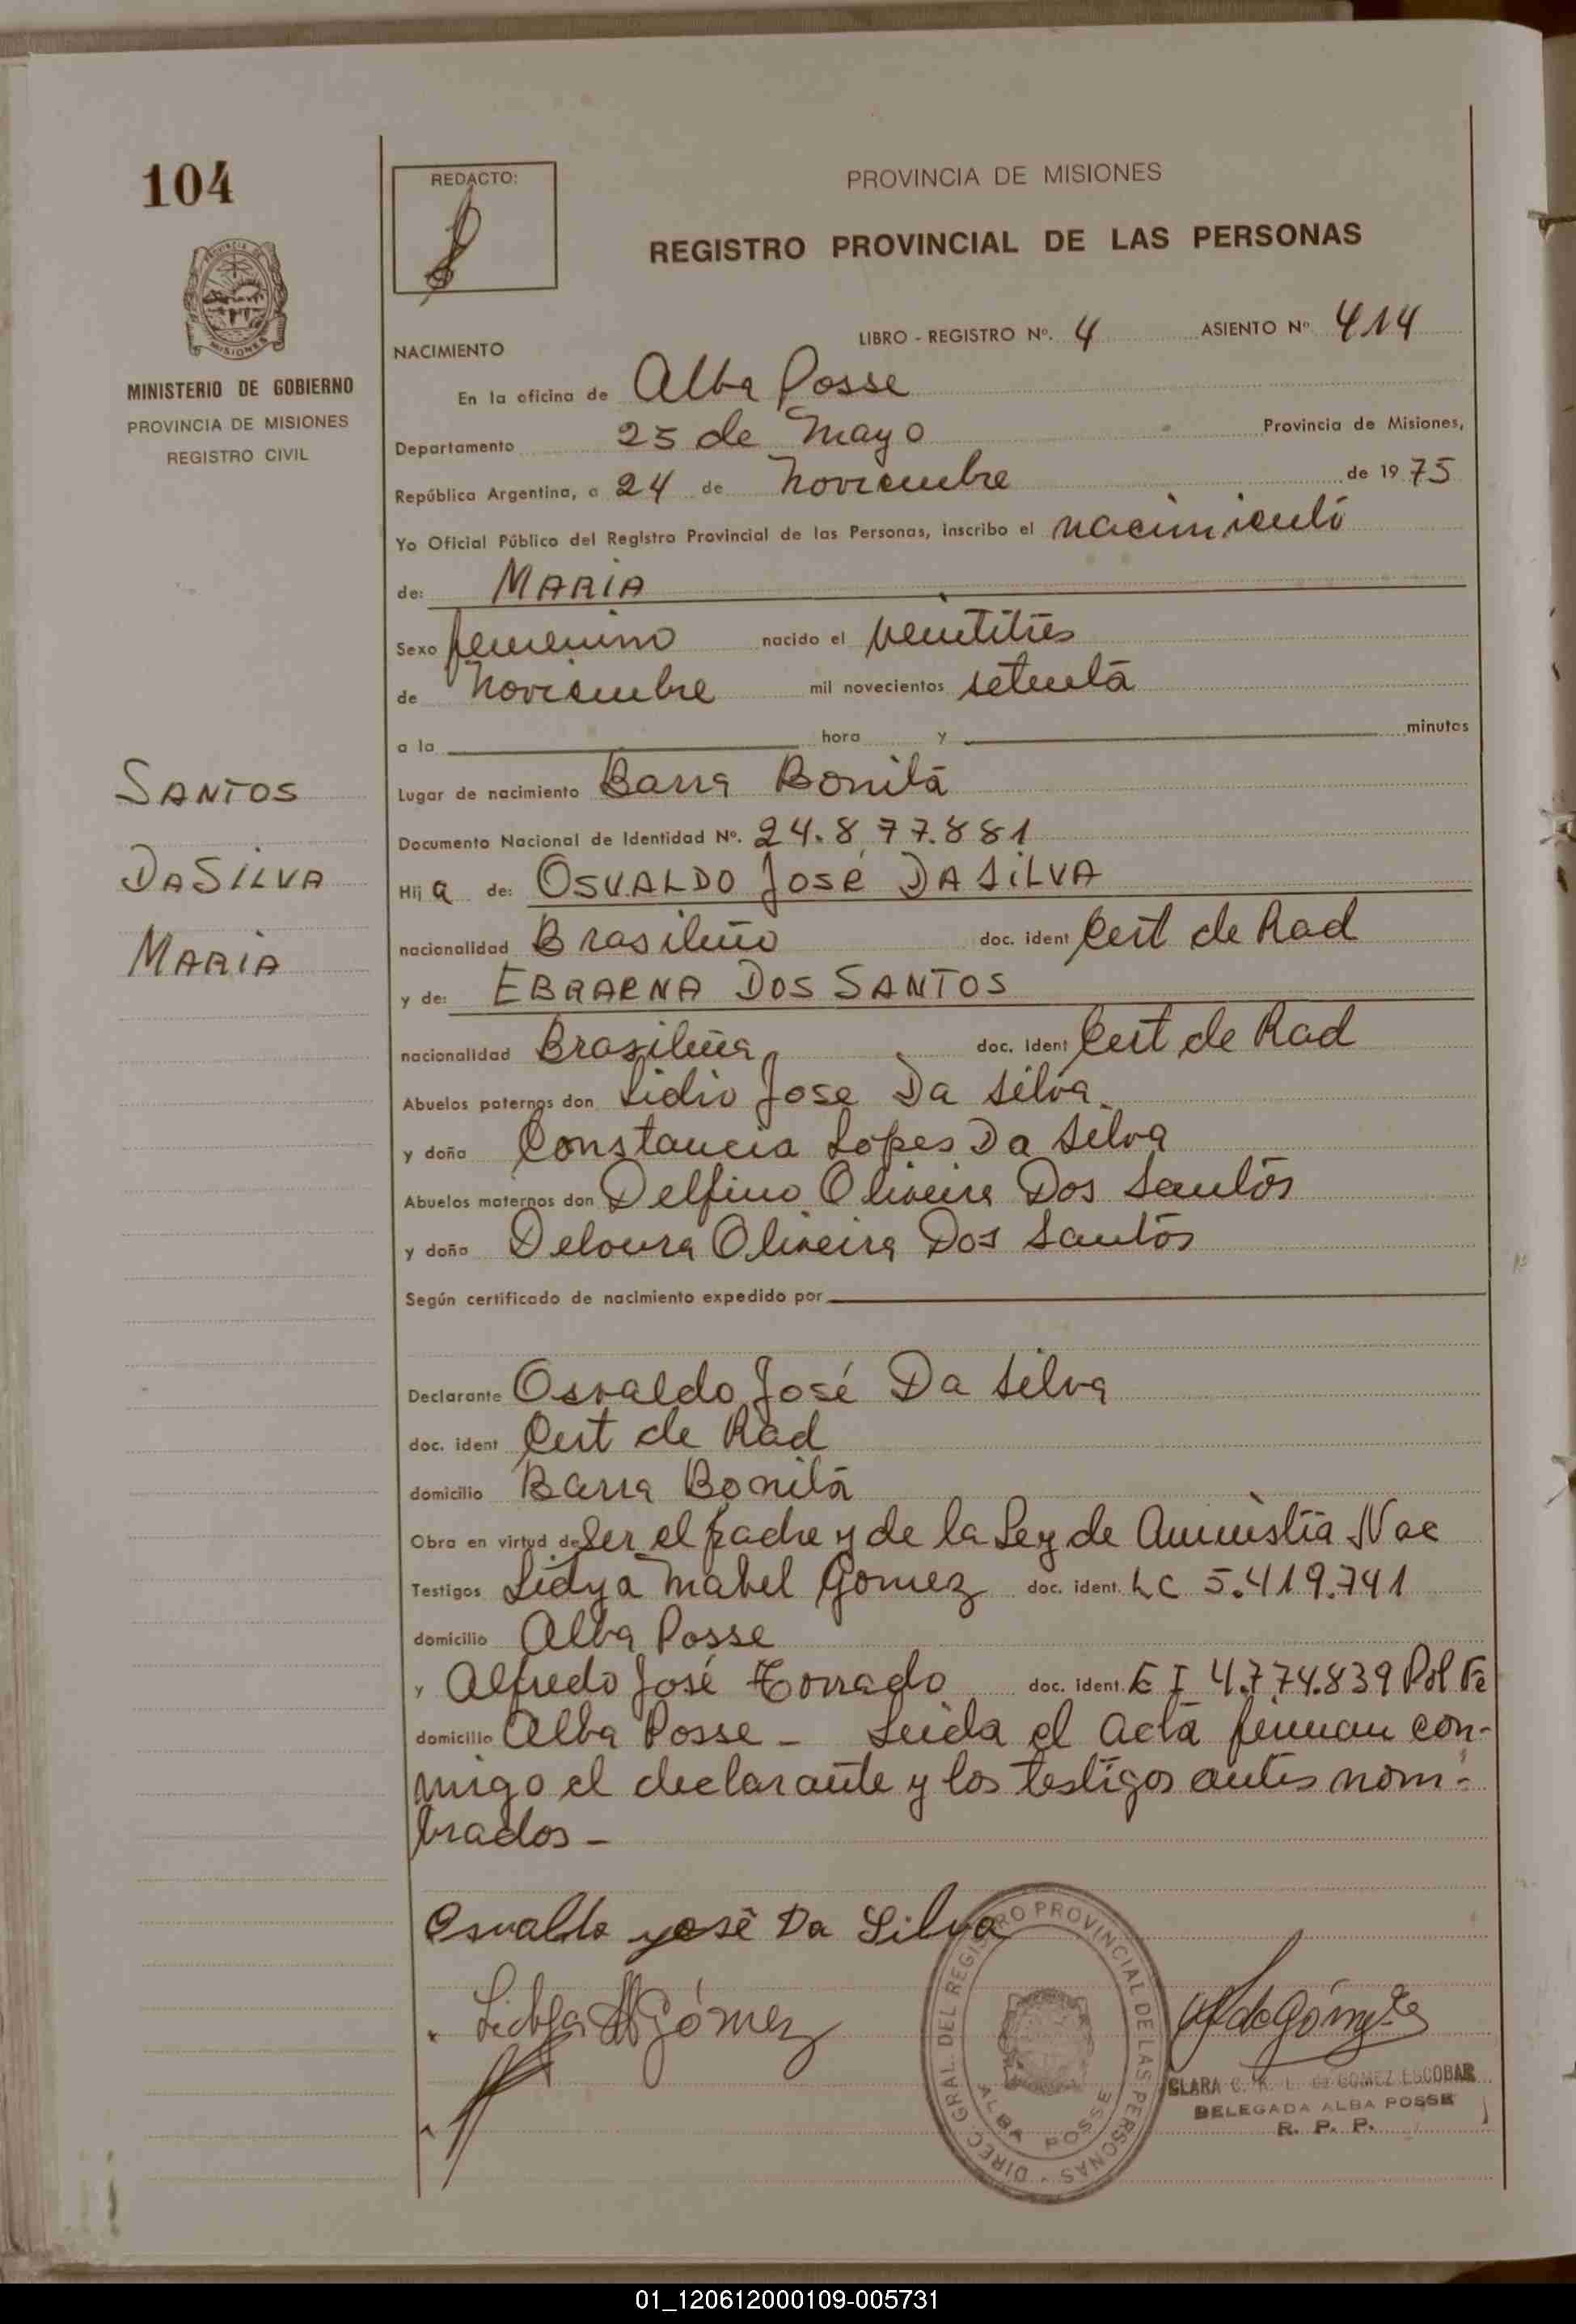 104
REDACTO:
PROVINCIA DE MISIONES
REGISTRO PROVINCIAL DE LAS PERSONAS
PROVINCIA DE
MISIONES
MINISTERIO DE GOBIERNO
PROVINCIA DE MISIONES
REGISTRO CIVIL
LIBRO - REGISTRO Nº. 4 ASIENTO Nº 414
NACIMIENTO
En la oficina de Alba Posse
Departamento 25 de Mayo Provincia de Misiones,
República Argentina, a 24 de Noviembre de 1975
Yo Oficial Público del Registro Provincial de las Personas, inscribo el nacimiento
de: MARIA
Sexo femenino nacido el veintitres
de Noviembre mil novecientos setenta
a la hora y minutos
Lugar de nacimiento Barra Bonita
Documento Nacional de Identidad Nº. 24.877.881
Hij a de: OSVALDO José DA SiLVA
nacionalidad Brasileño doc. ident Cert de Rad
y de: EBRAENA DOS SANTOS
nacionalidad Brasileña doc. ident Cert de Rad
Abuelos paternos don Lidio Jose Da Silva
y doña Constancia Lopes Da Silva
Abuelos maternos don Delfino Oliveira Dos Santos
y doña Deloura Oliveira Dos Santos
Según certificado de nacimiento expedido por
SANTOS
DASILVA
MARIA
Declarante Osvaldo José Da Silva
doc. ident Cert de Rad
domicilio Barra Bonita
Obra en virtud de Ser el padre y de la Ley de Amnistia Nac
Testigos Lidya Mabel Gomez doc. ident. LC 5.419.741
domicilio Alba Posse
y Alfredo José Torrado doc. ident. E I 4.774.839 Pol Fe
domicilio Alba Posse - Leida el acta firman con-
migo el declarante y los testigos antes nom-
brados -
Osvaldo yosê Da Silva
Lidya M Gómez
DIREC. GRAL. DEL REGISTRO PROVINCIAL DE LAS PERSONAS
ALBA POSSE
CLARA C. R. L. de GOMEZ ESCOBAR
DELEGADA ALBA POSSE
R. P. P.
01_120612000109-005731